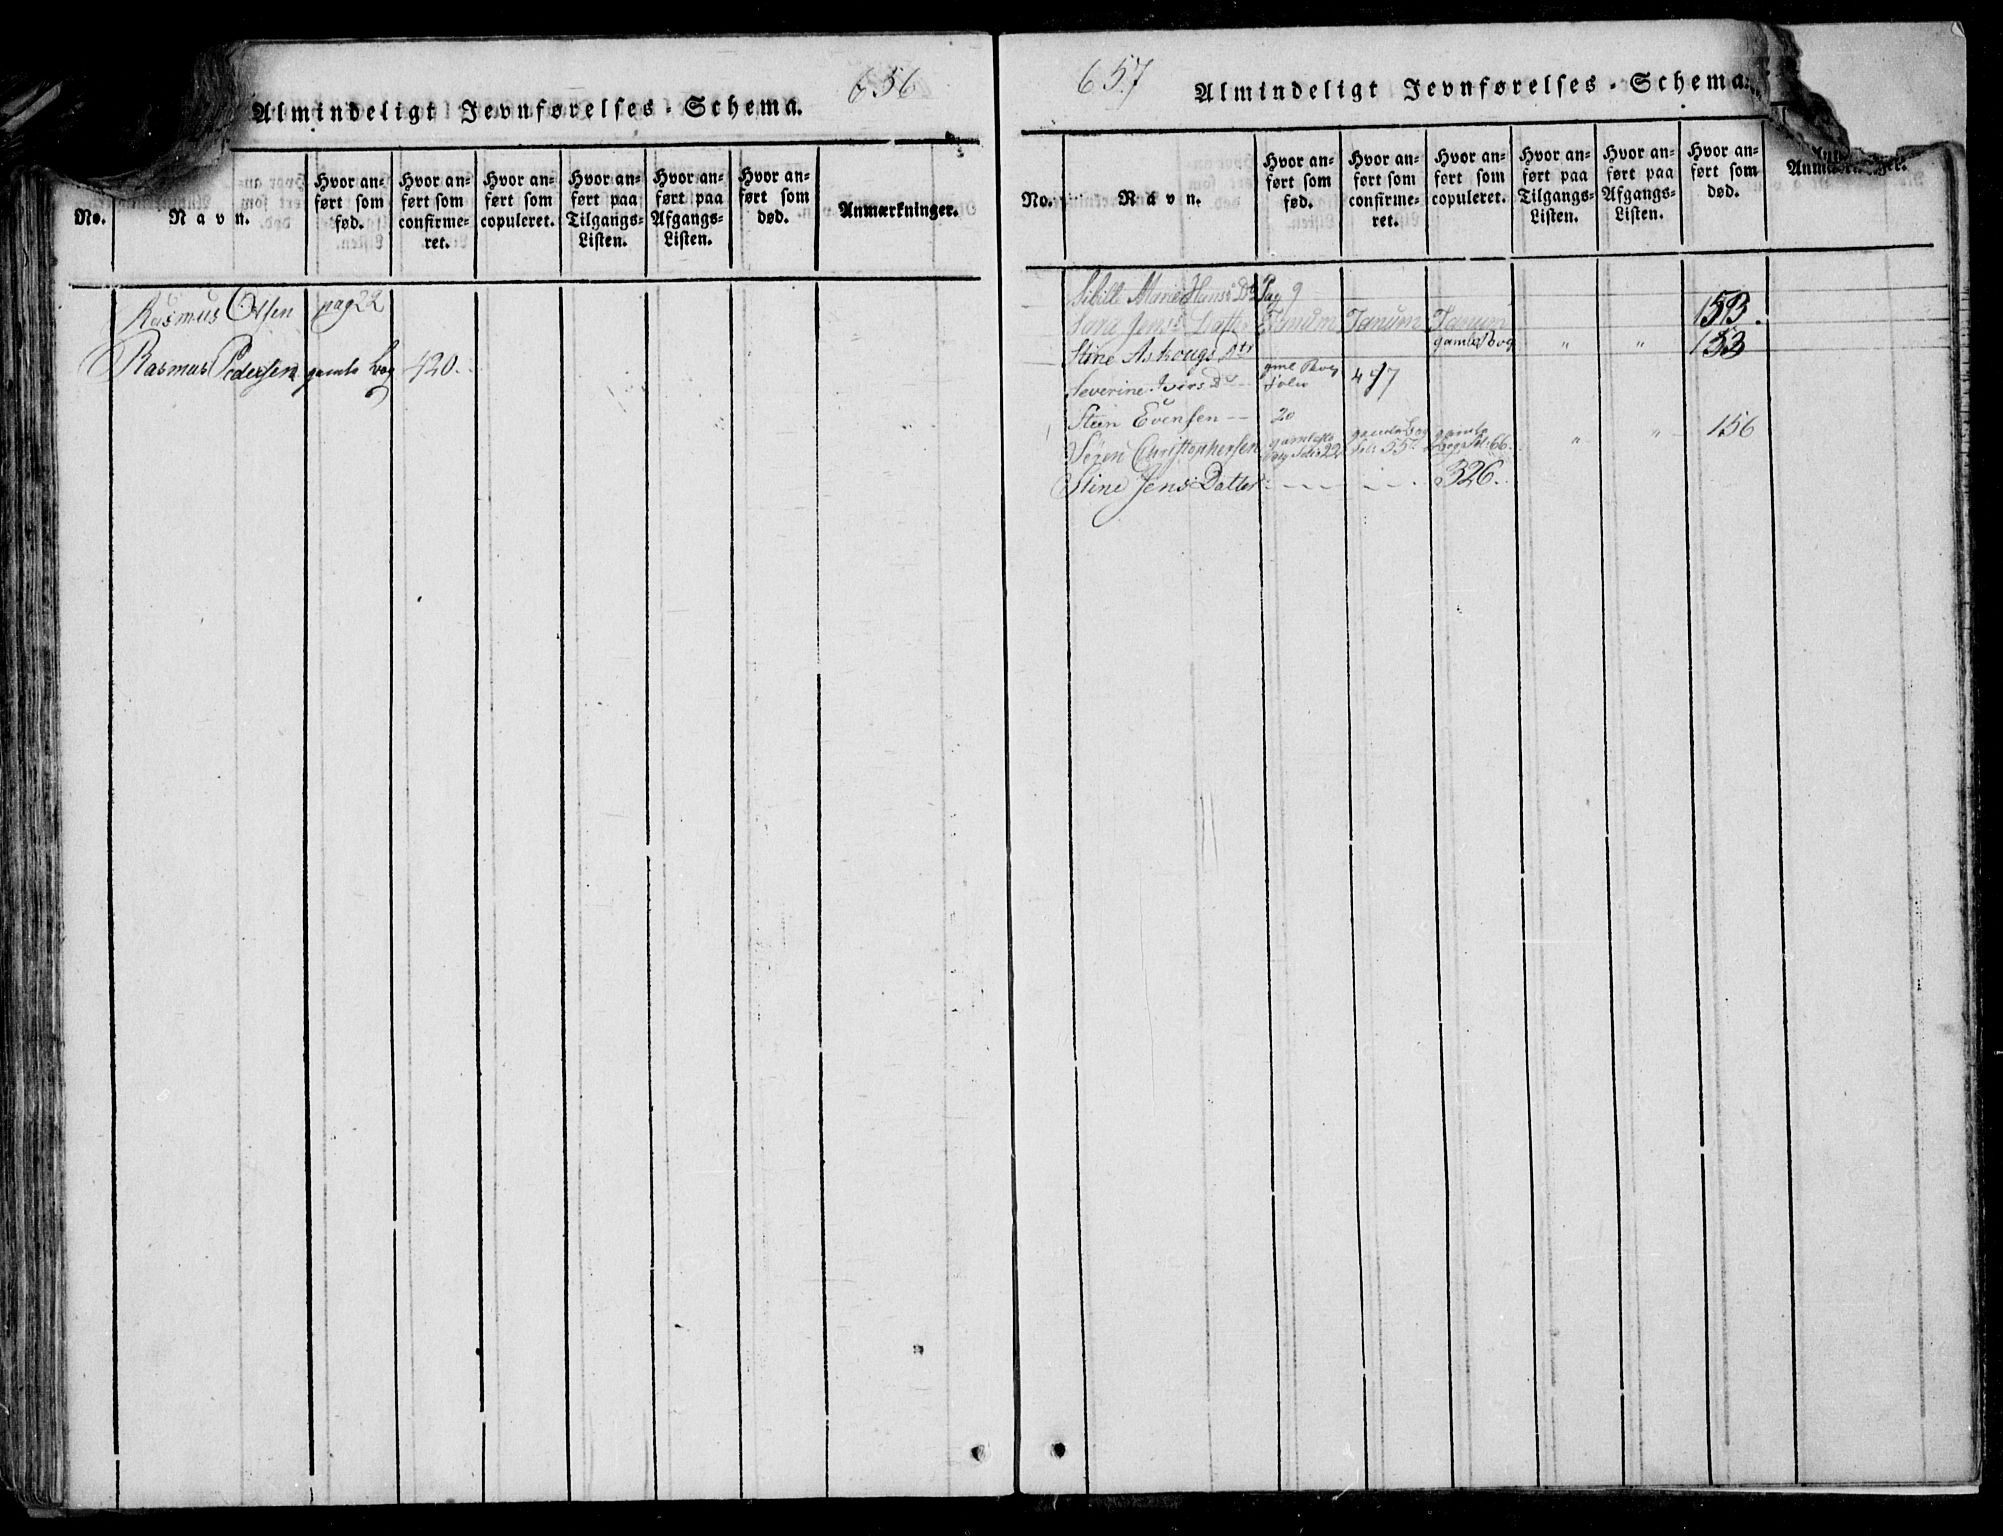 656
Almindeligt Jevnførelses-Schema.
No.
Navn.
Hvor anført som fød.
Hvor anført som confirmeret.
Hvor anført som copuleret.
Hvor anført paa Tilgangs-Listen.
Hvor anført paa Afgangs-Listen.
Hvor anført som død.
Anmærkninger.
Rasmus Olsen pag 22
Rasmus Pedersen gamle bog 420.
657
Almindeligt Jevnførelses-Schema.
No.
Navn.
Hvor anført som fød.
Hvor anført som confirmeret.
Hvor anført som copuleret.
Hvor anført paa Tilgangs-Listen.
Hvor anført paa Afgangs-Listen.
Hvor anført som død.
Sibille Marie Hans Dtr Pag 9
Jens Datter Tanum Tanum Tanum 153.
Stine gamle bog " " 153
Severine Folio 497
Sten Evensen -- 20
Søren Christophersen gamle bog Fol: 55 gamle bog Fol: 66. " " 156
Stine Jens Datter - - - - - 326.